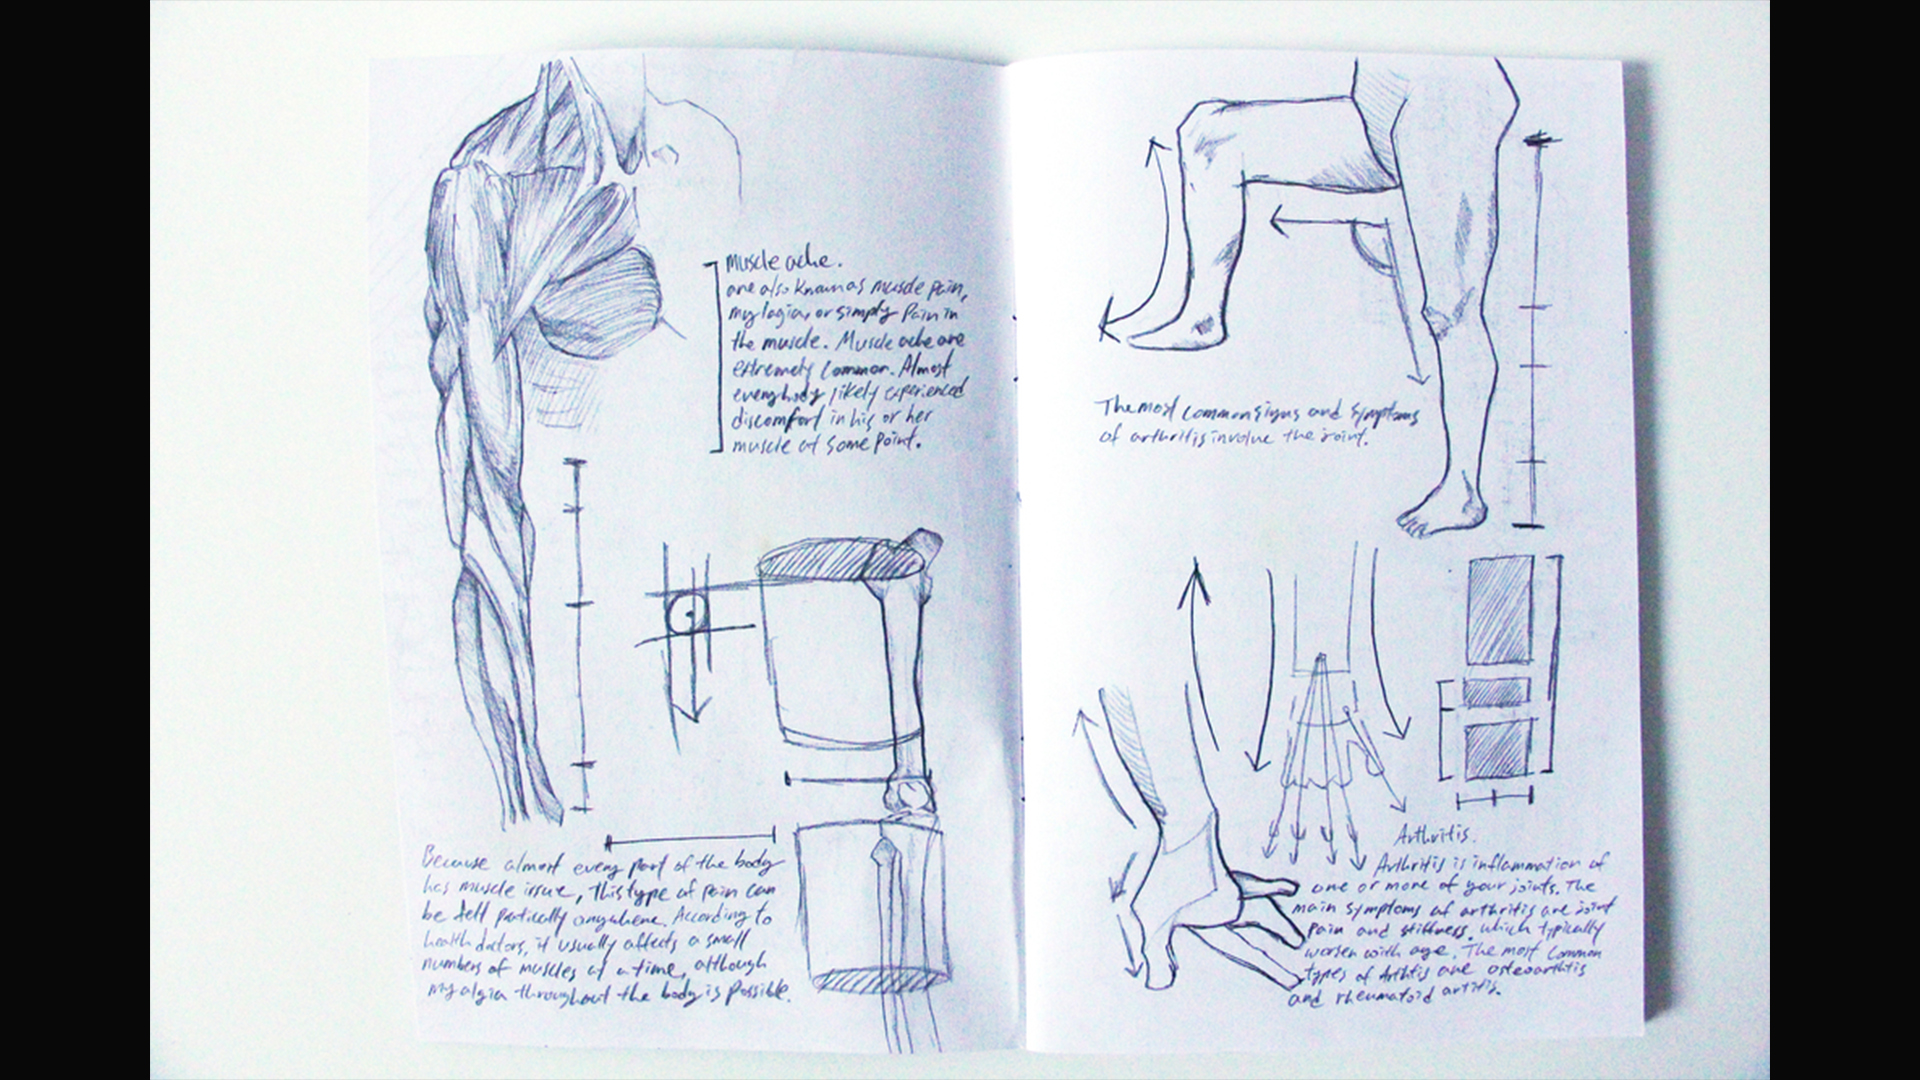 Muscle ache.
are also known as muscle pain,
mylagia, or simply Pain in
the muscle. Muscle ache are
extremely common. Almost
everybody likely experienced
discomfort in his or her
muscle at some point.
Because almost every part of the body
has muscle issue, this type of pain can
be fell patically anywhere. According to
health doctors, it usually affects a small
numbers of muscles at a time, although
myalgia throughout the body is possible.
The most common signs and symptoms
of arthritis involve the joint.
Arthritis.
Arthritis is inflammation of
one or more of your joints. The
main symptoms of arthritis are joint
pain and stiffness, which typically
worsen with age. The most common
types of Arthtis are osteoarthtis
and rheumatoid artitis.